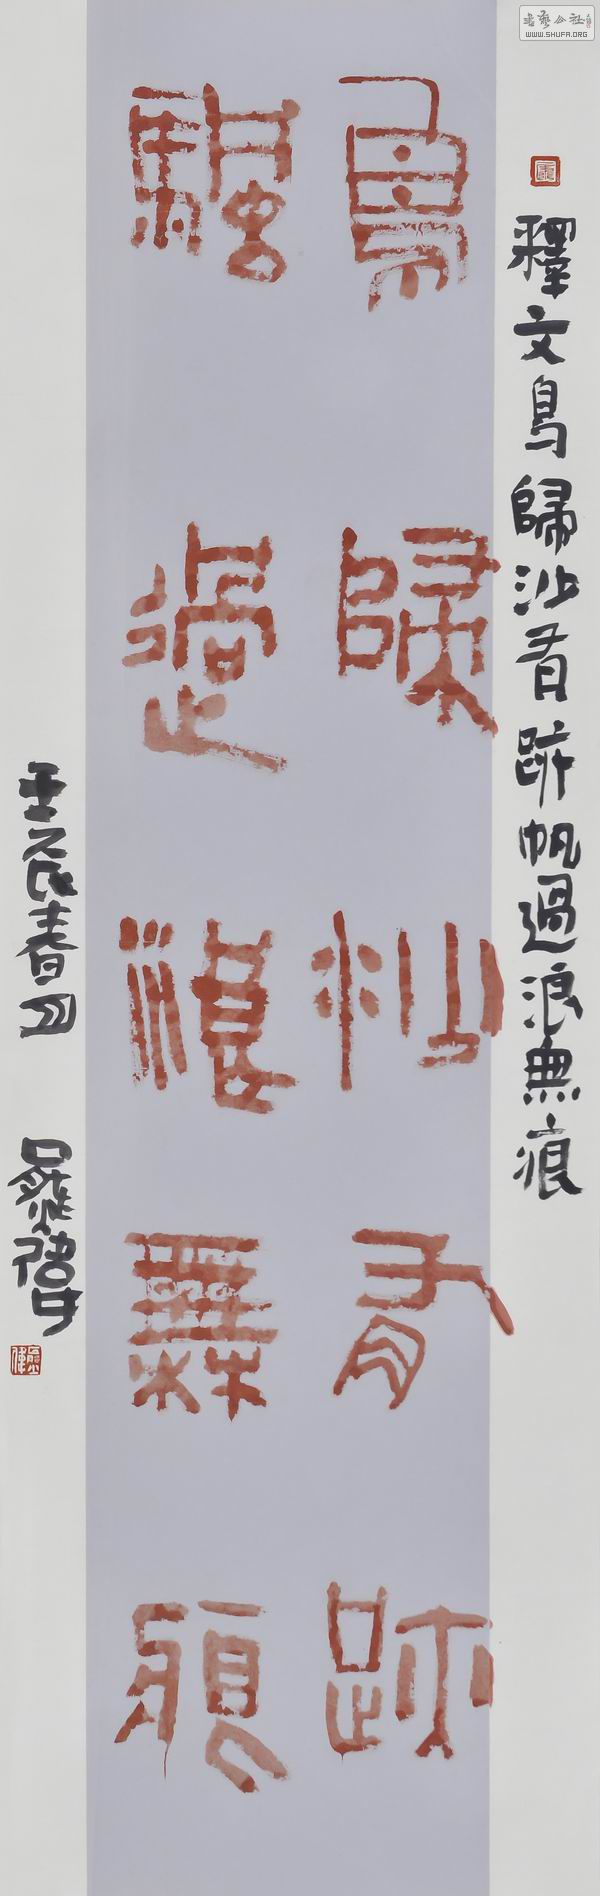 書藝公社
WWW.SHUFA.ORG
釋文鳥歸沙有跡帆過浪無痕
鳥歸沙有跡
颿過浪無痕
壬辰春月